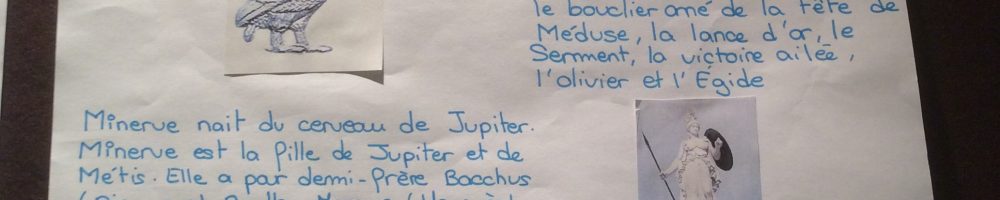 le bouclier orné de la tête de
Méduse, la lance d'or, le
Serment, la victoire ailée,
l'olivier et l'Égide
Minerve nait du cerveau de Jupiter.
Minerve est la fille de Jupiter et de
Métis. Elle a par demi-frère Bacchus